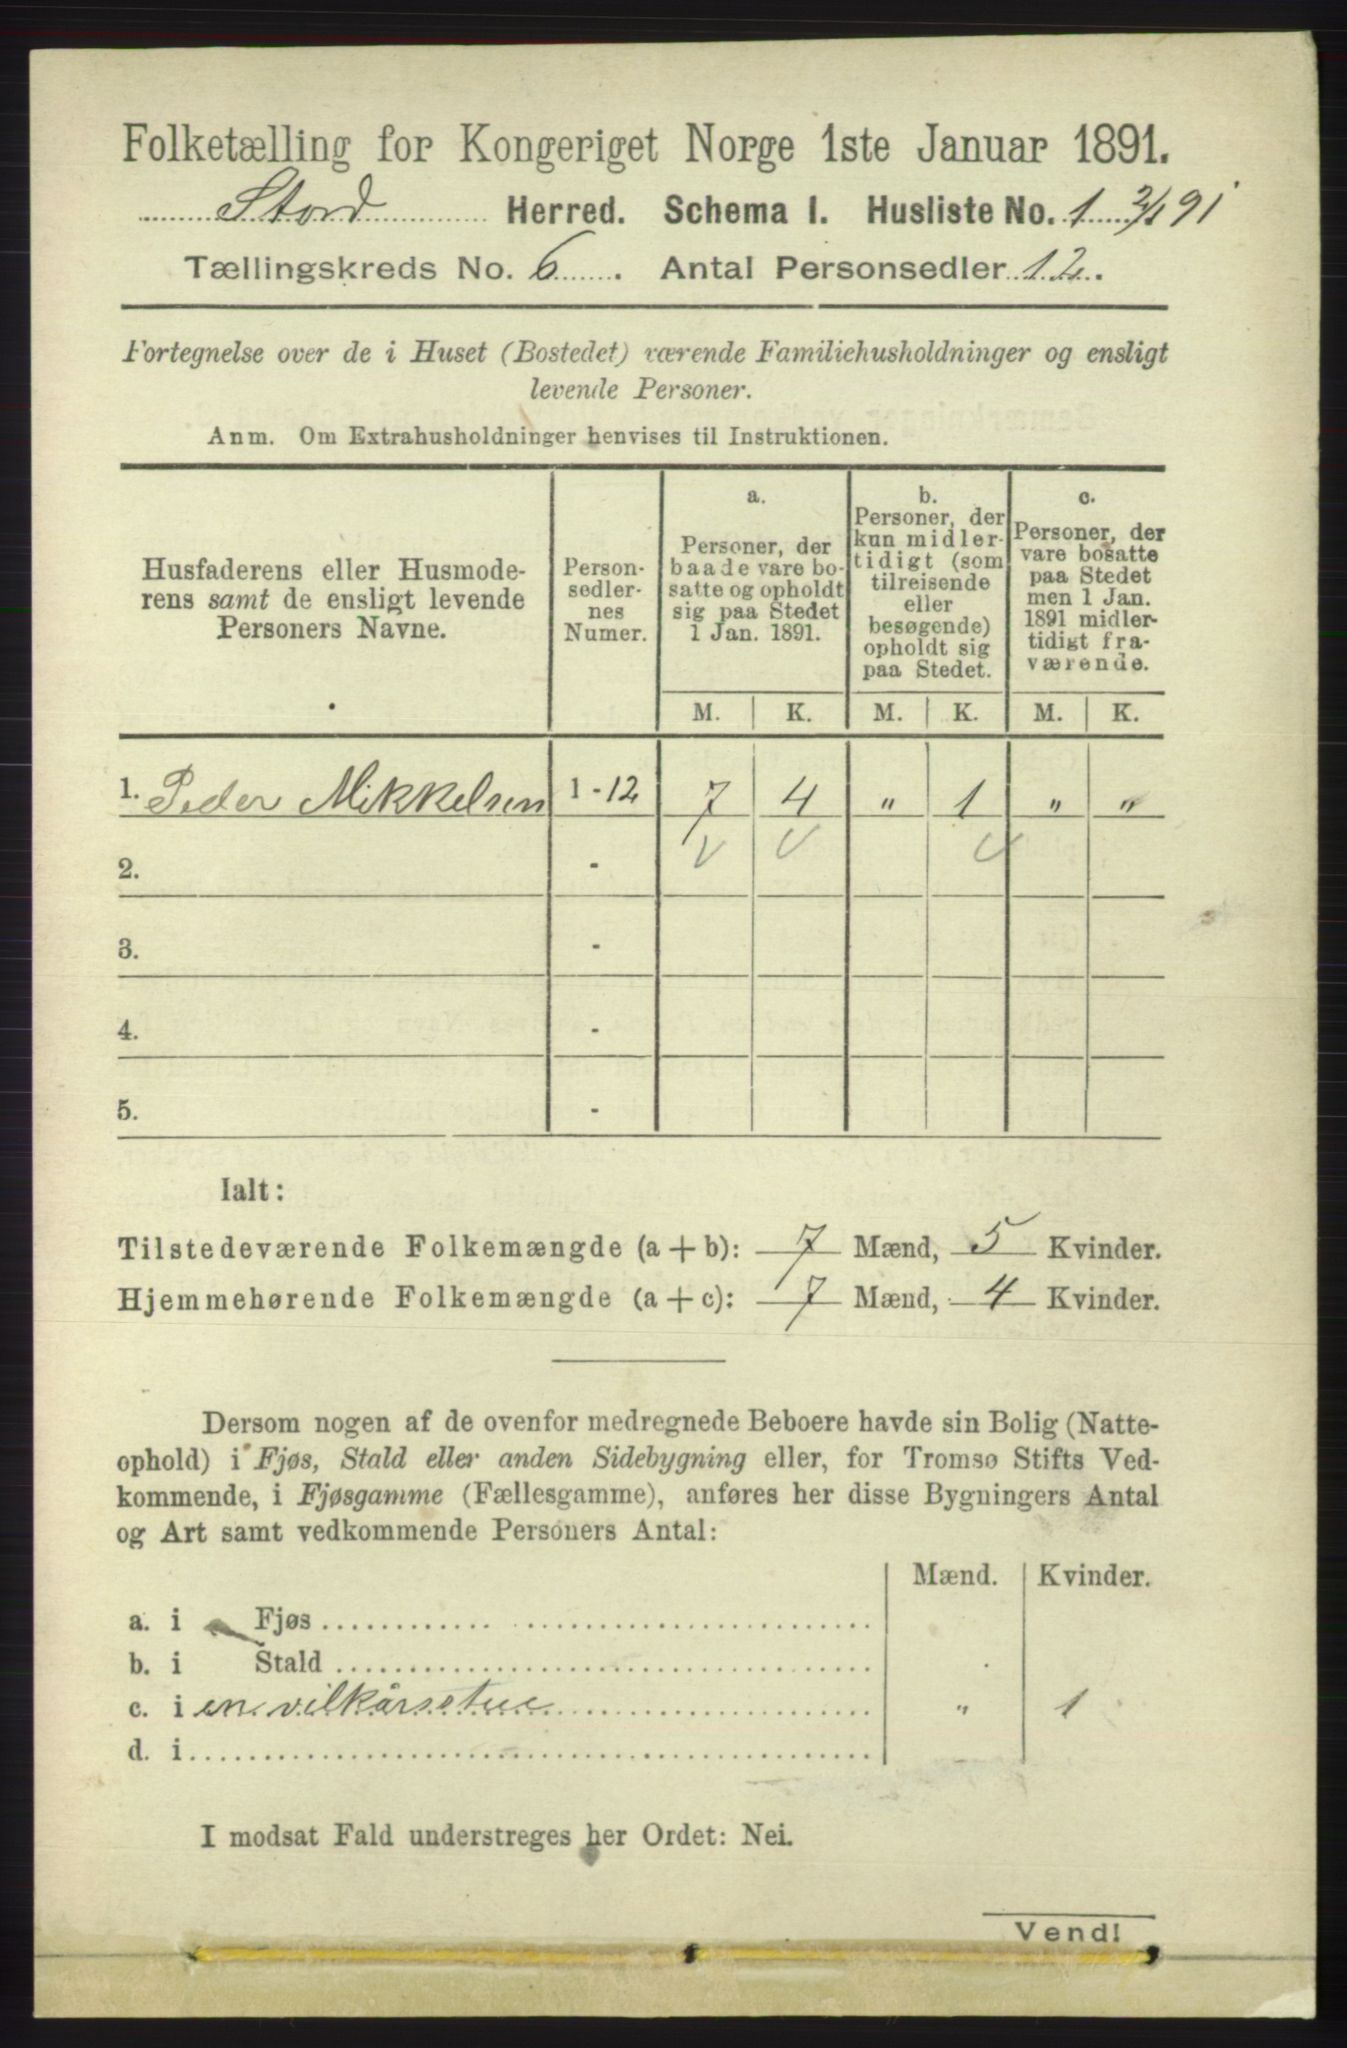 Folketælling for Kongeriget Norge 1ste Januar 1891.
Stord Herred. Schema I. Husliste No. 1 2/1 91
Tællingskreds No. 6. Antal Personsedler 12.
Fortegnelse over de i Huset (Bostedet) værende Familiehusholdninger og ensligt
levende Personer.
Anm. Om Extrahusholdninger henvises til Instruktionen.
Husfaderens eller Husmode-
rens samt de ensligt levende
Personers Navne.
Person-
sedler-
nes
Numer.
a.
Personer, der
baade vare bo-
satte og opholdt
sig paa Stedet
1 Jan. 1891.
b.
Personer, der
kun midler-
tidigt (som
tilreisende
eller
besøgende)
opholdt sig
paa Stedet.
c.
Personer, der
vare bosatte
paa Stedet
men 1 Jan.
1891 midler-
tidigt fra-
værende.
M. K. M. K. M. K.
1. Peder Mikkelsen 1 - 12 7 4 " 1 " "
2. -
3. -
4. -
5. -
Ialt:
Tilstedeværende Folkemængde (a + b): 7 Mænd, 5 Kvinder.
Hjemmehørende Folkemængde (a + c): 7 Mænd, 4 Kvinder.
Dersom nogen af de ovenfor medregnede Beboere havde sin Bolig (Natte-
ophold) i Fjøs, Stald eller anden Sidebygning eller, for Tromsø Stifts Ved-
kommende, i Fjøsgamme (Fællesgamme), anføres her disse Bygningers Antal
og Art samt vedkommende Personers Antal:
Mænd. Kvinder.
a. i Fjøs
b. i Stald
c. i en vilkårsstue " 1
d. i
I modsat Fald understreges her Ordet: Nei.
Vend!